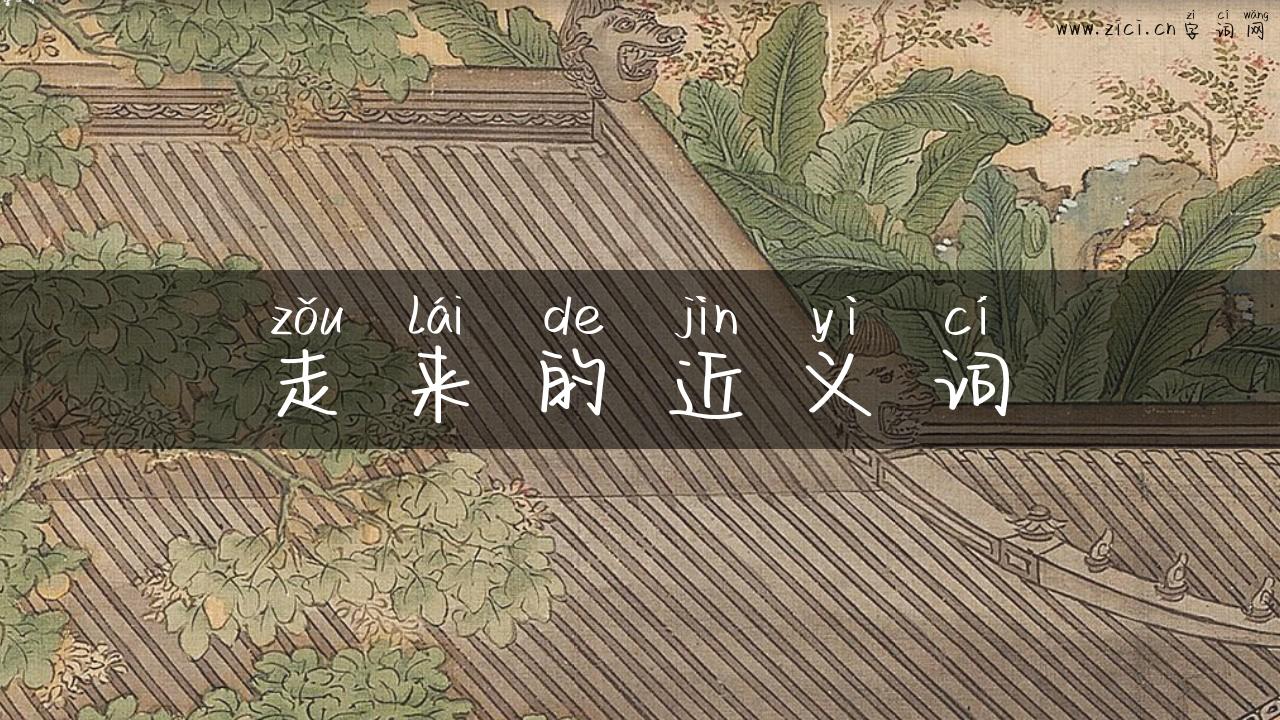 zì cí wǎng
www.zici.cn 字词网
zǒu lái de jìn yì cí
走来的近义词